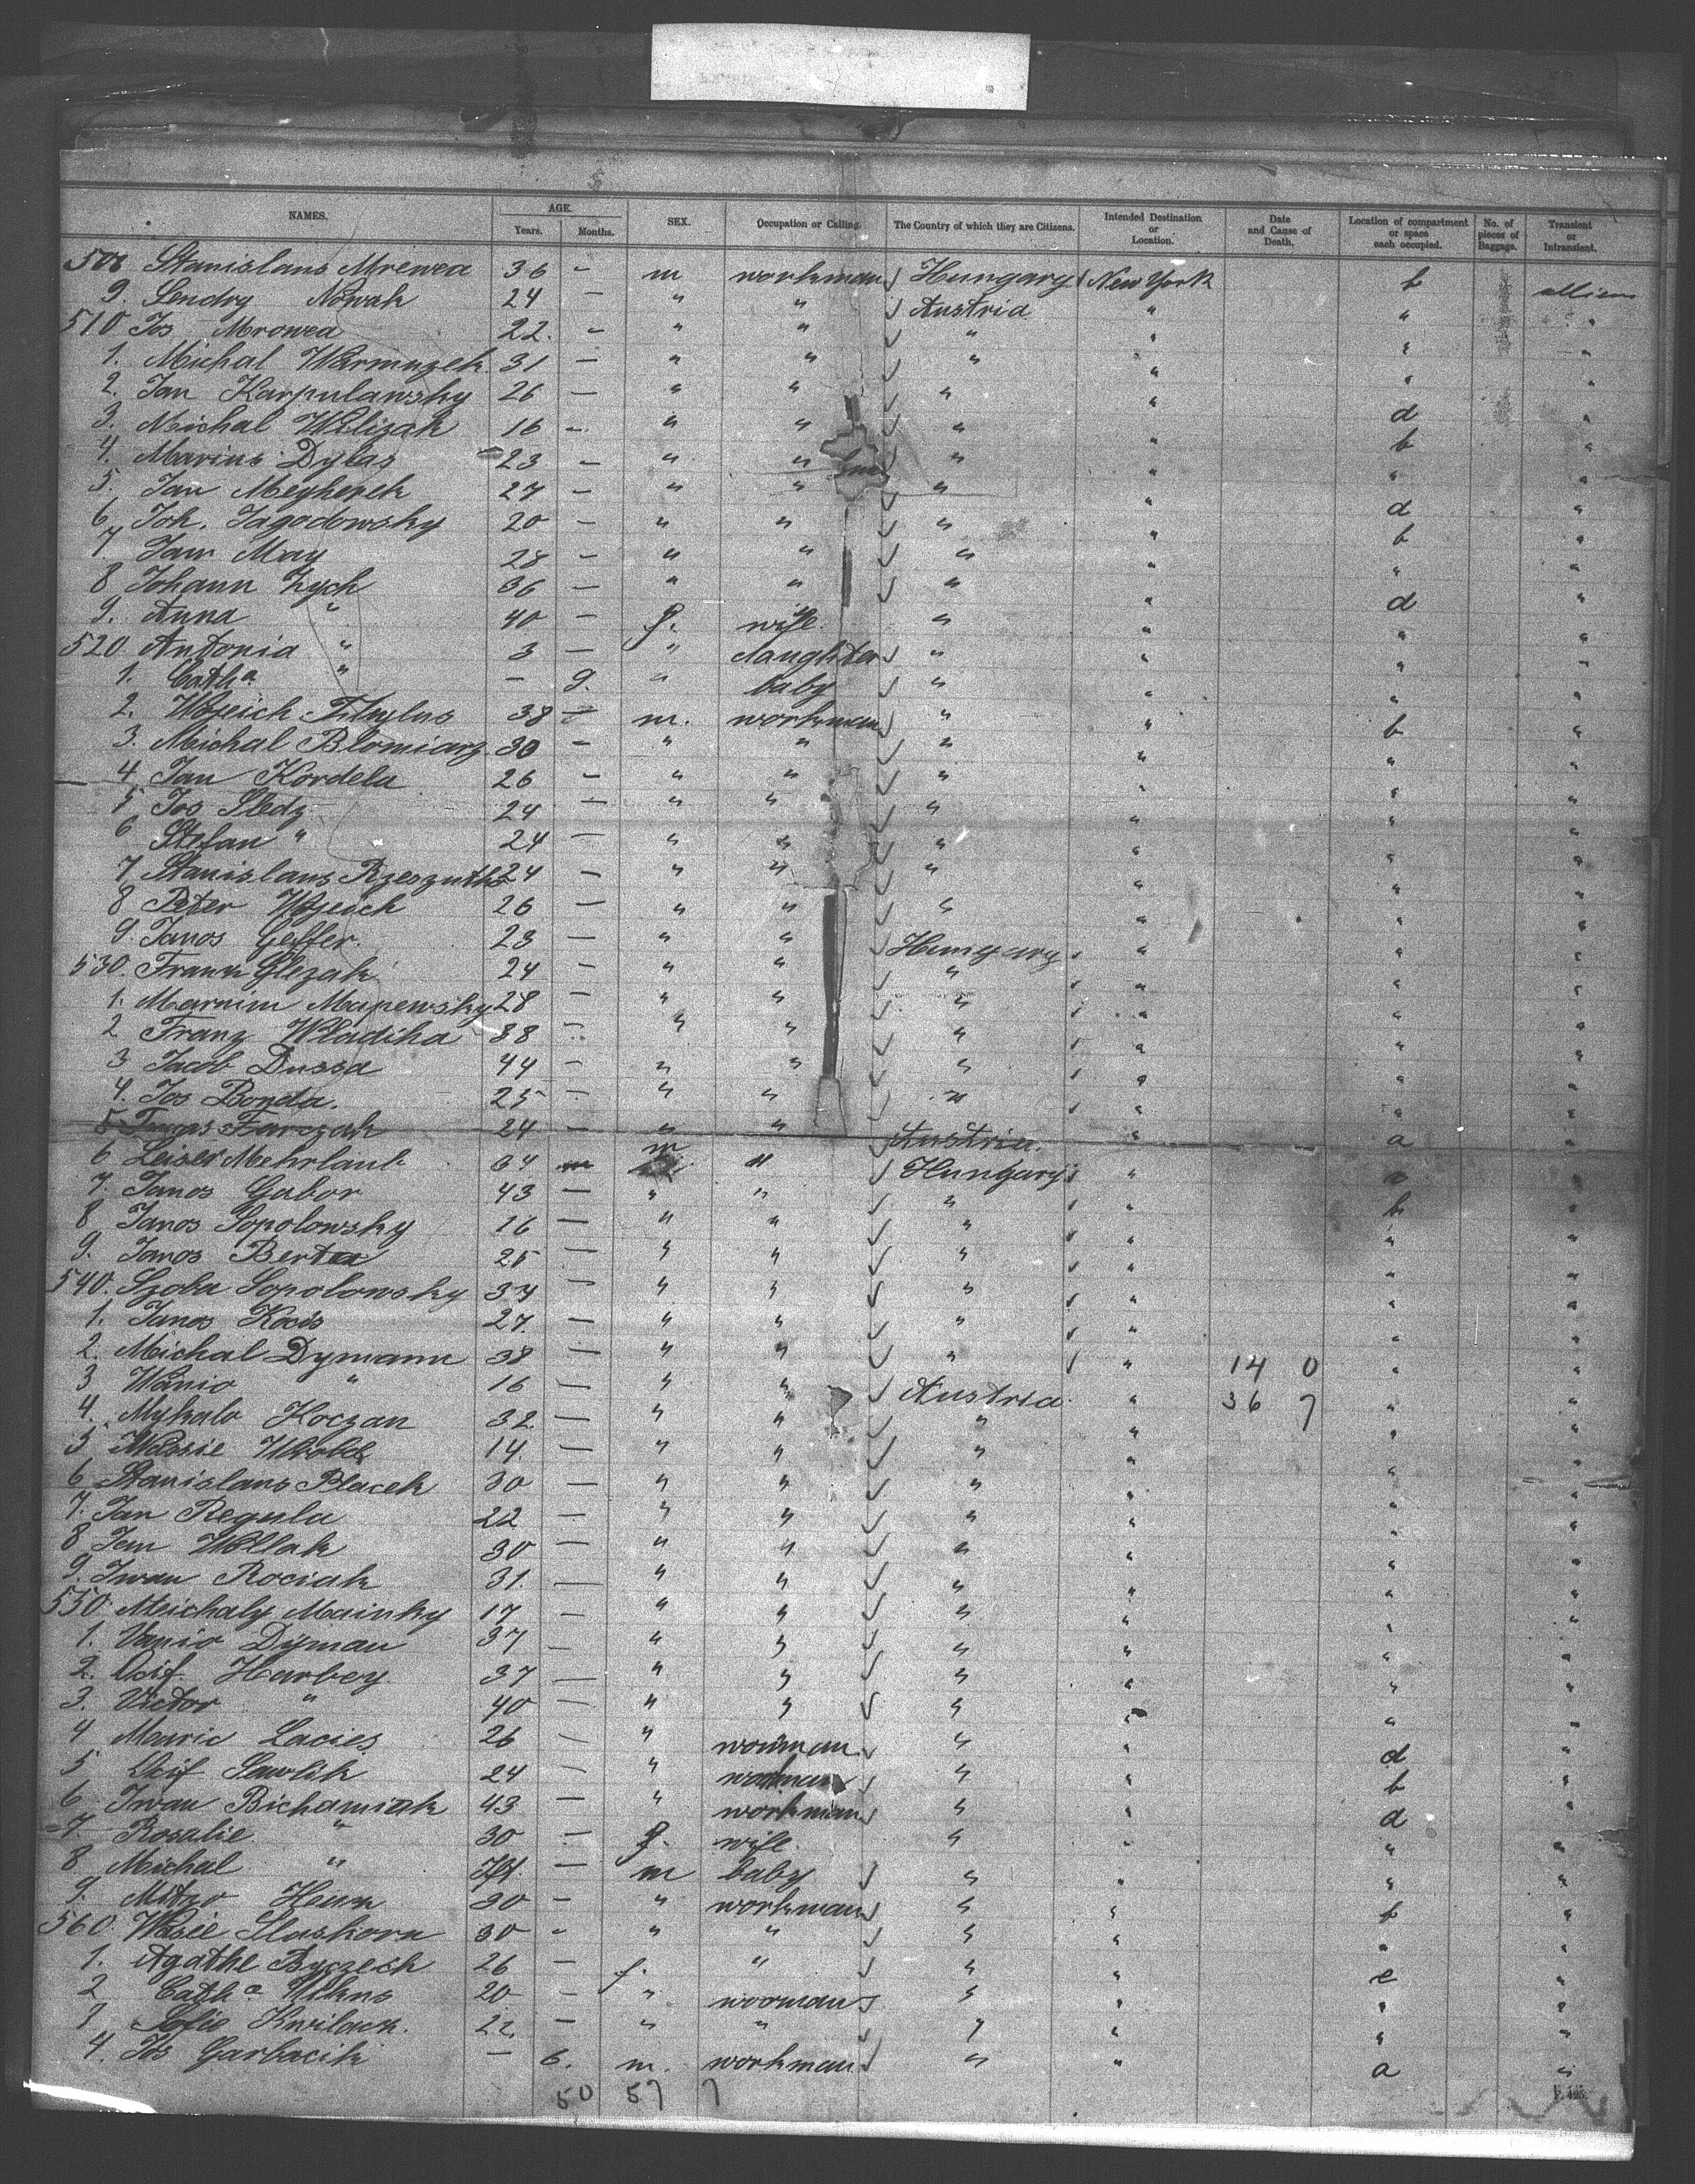 NAMES. AGE. Years. Months. SEX. Occupation or Calling. The Country of which they are Citizens. Intended Destination or Location. Date and Cause of Death. Location of compartment or space each occupied. No. of pieces of Baggage. Transient or Intransient.
508 Stanislans Mrewea 36 - m workman Hungary New York b
9. Nowak 24 - " " Austria " " "
510 Jos Mrowea 22. - " " " " " "
1. Michal Warmuzek 31 - " " " " " "
2. Jan Karpulawsky 26 - " " " " d "
3. Michal Welizak 16 - " " " " b "
4. Marius Dylas 23 - " " " " " "
5. Jan 27 - " " " " d "
6. Joh. Jagodowsky 20 - " " " " b "
7 Jan May 28 - " " " " " "
8 Johann Zych 36 - " " " " d "
9. Anna " 40 - f. wife " " " "
520 Antonia " 3 - " daughter " " " "
1. Catha " - 9. " baby " " " "
2. Wojeich 38 - m. workman " " b "
3. Michal Blomiarz 30 - " " " " " "
4. Jan Kordela 26 - " " " " " "
5 Jos Sledz 24 - " " " " " "
6 Stefan " 24 - " " " " " "
7 Stanislans Rzeszutko 24 - " " " " " "
8 Peter Wojeich 26 - " " " " " "
9. Janos Geffer. 23 - " " Hungary " " "
530. Frank Slezak 24 - " " " " " "
1. Mapewsky 28 - " " " " " "
2 Franz Wladika 38 - " " " " " "
3 Jacob Dussa 44 - " " " " " "
4. Jos Bonda. 25 - " " " " " "
5 Farczak 24 - " " Austria. " a "
6 Leiser Mehrlaub 34 m " Hungary " "
7. Janos Gabor 43 - " " " " b "
8 Janos Sopolowsky 16 - " " " " " "
9. Janos Berta 25 - " " " " " "
540. Szoba Sopolowsky 34 - " " " " " "
1. Janos Kocis 27. - " " " " " "
2. Michal Dymann 38 - " " " " 14 0 " "
3 Wanio " 16 - " " Austria. " 36 7 " "
4. Mykalo Koczan 32. - " " " " " "
5 Wassie 14. - " " " " " "
6 Stanislans Placek 30 - " " " " " "
7. Jan Regula 22 - " " " " " "
8 Jan Wollak 30 - " " " " " "
9. Iwan Rociak 31. - " " " " " "
550. Meichaly Mainky 17 - " " " " " "
1. Vanio Dyman 37 - " " " " " "
2. Osif Harbey 37 - " " " " " "
3. Victor " 40 - " " " " " "
4 Mauric Lacies 26 - " workman " " d "
5 Osif Sawlik 24 - " workman " " b "
6 Iwan Bichamiak 43 - " workman " " d "
7. Rosalie " 30 - f. wife. " " " "
8 Michal " - m baby " " " "
9. Mitro 30 - " workman " " b "
560. Wasie Slaskorn 30 - " " " " " "
1. Agathe Byczech 26 - f. " " " c "
2 Catha 20 - " woorman " " " "
Sofie Kwilack. 22. - " " " " " "
4. Jos Garbacik - 6. m. workman " " a "
50 57 7